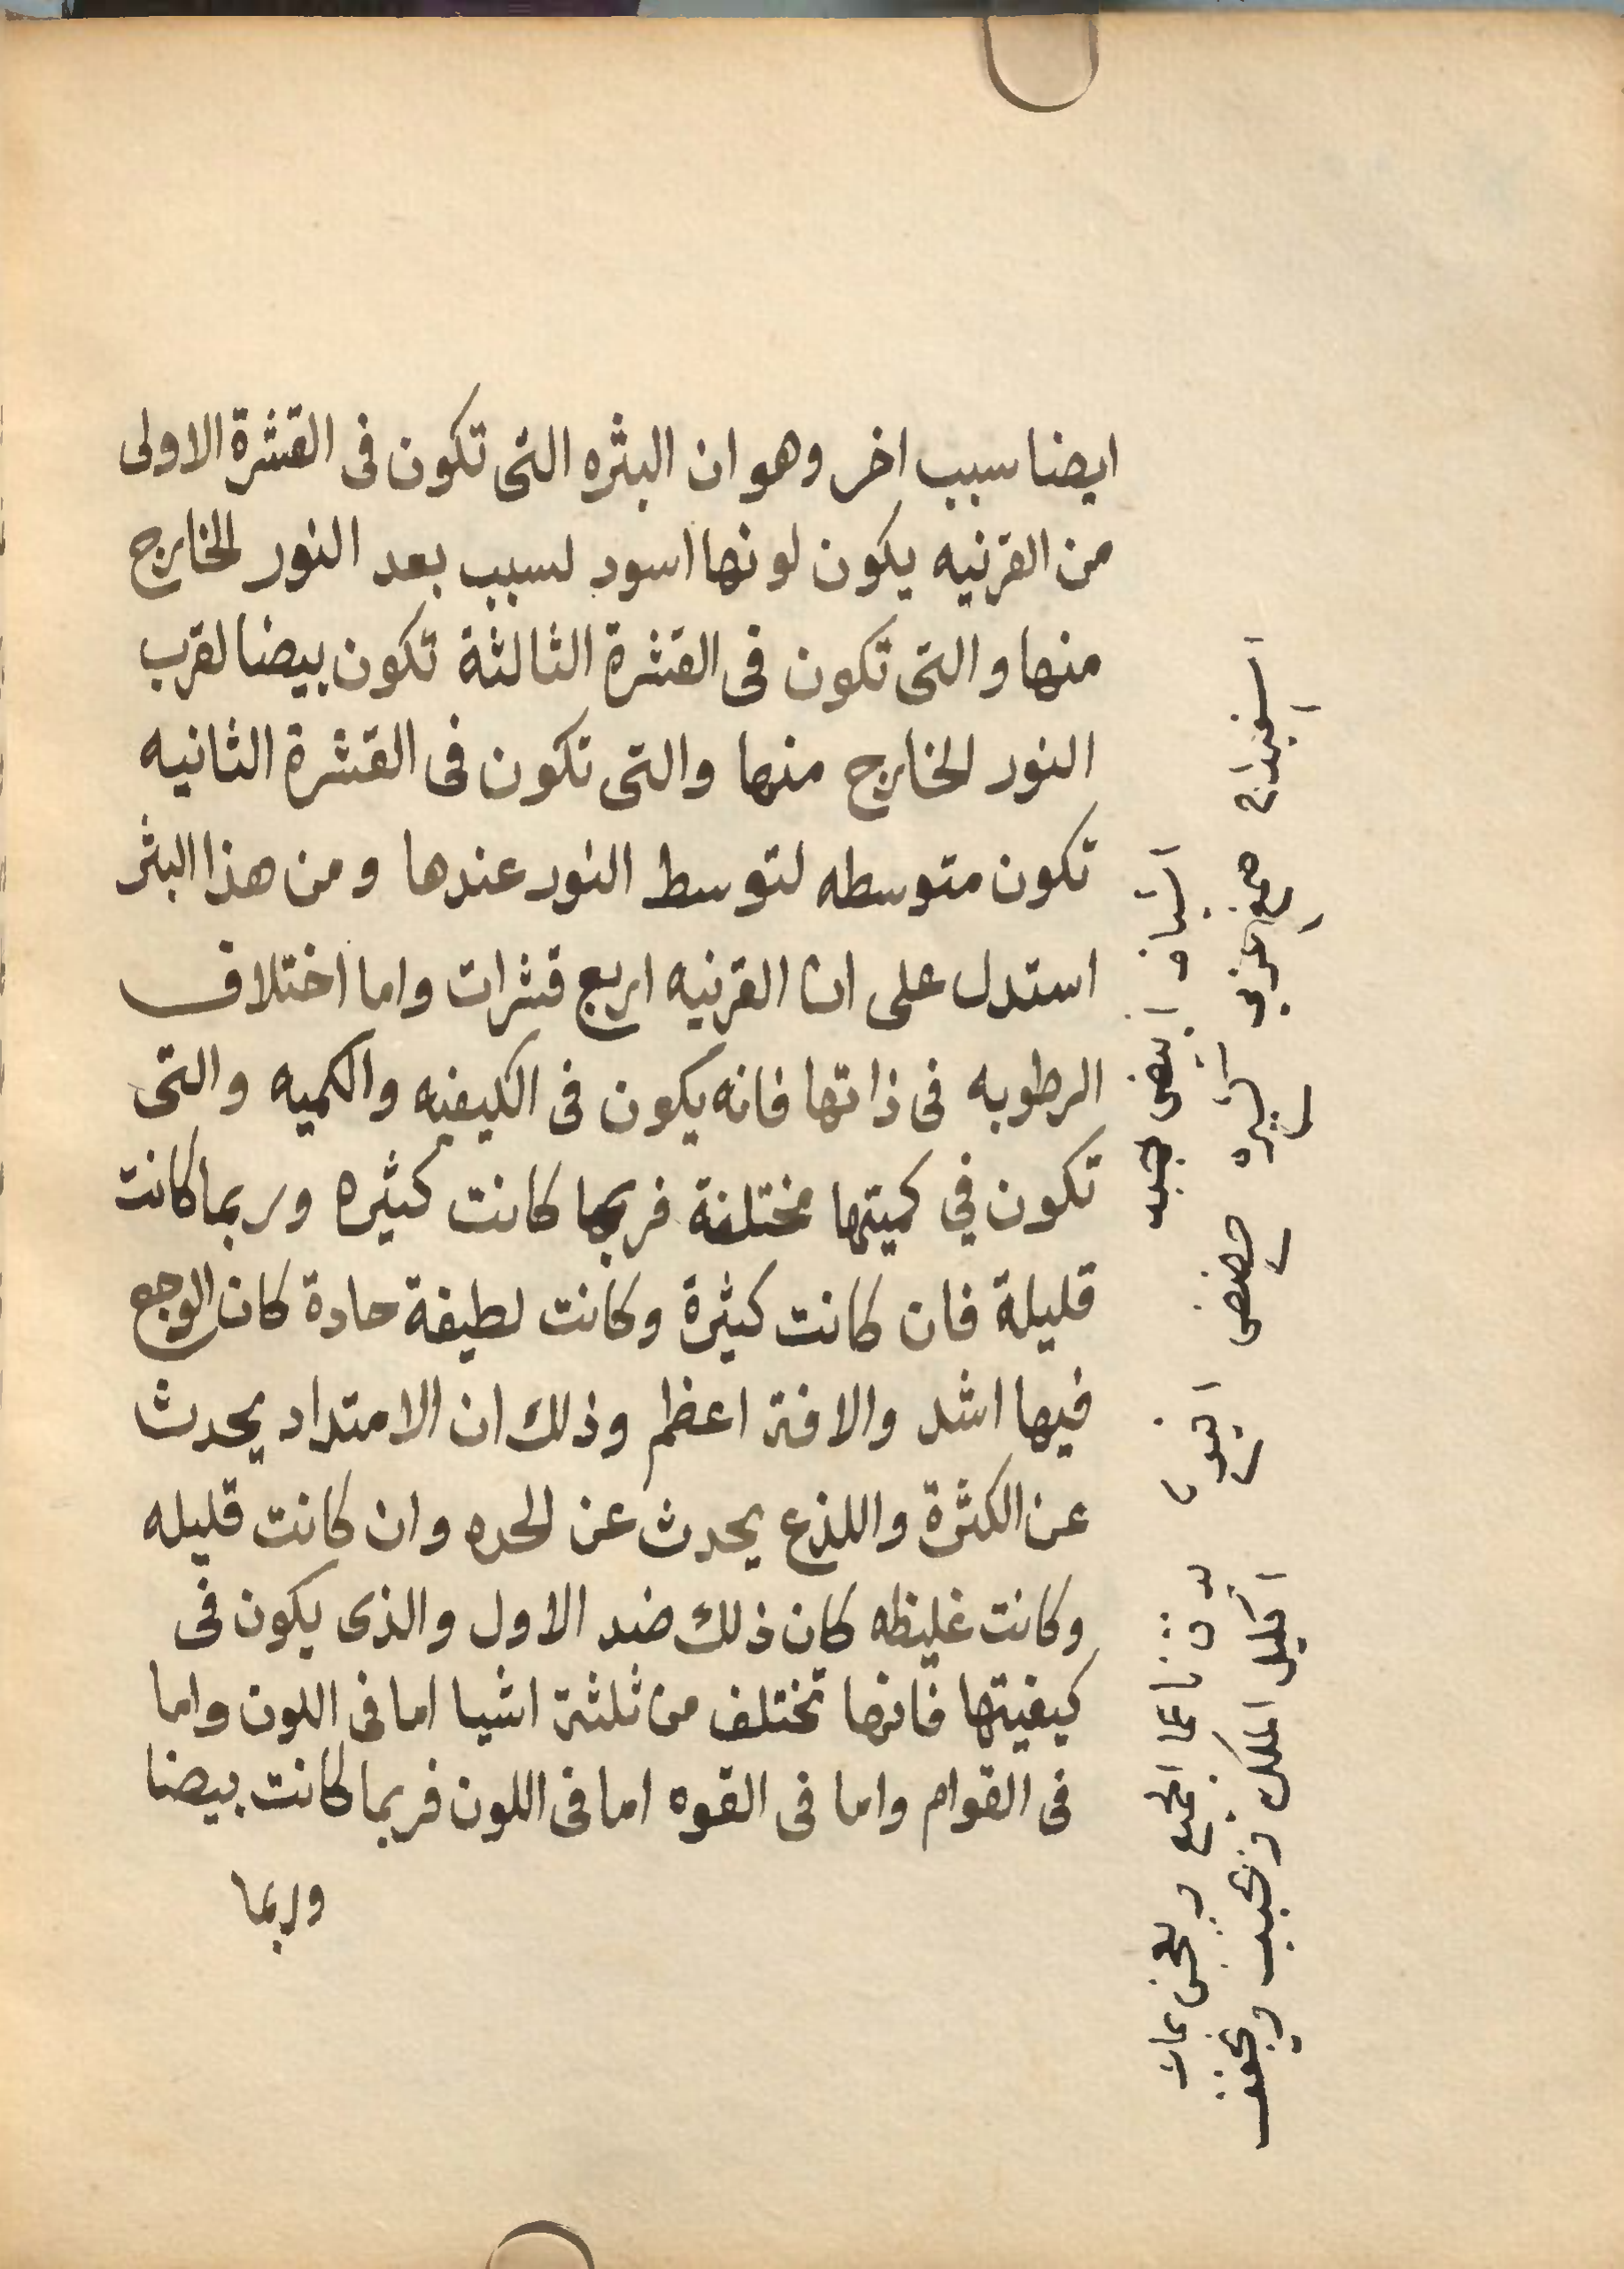 ايضا سبب اخر وهو ان البثره التى تكون فى القشرة الاولى
من القرنيه يكون لونها اسود لسبب بعد النور الخارج
منها والتى تكون فى القشرة الثالثة تكون بيضا لقرب
النور الخارج منها والتى تكون فى القشرة الثانيه
تكون متوسطه لتوسط النور عندها ومن هذا البثر
استدل على ان القرنيه اربع قشرات واما اختلاف
الرطوبه فى ذاتها فانه يكون فى الكيفيه والكميه والتى
تكون في كميتها مختلفة فربما كانت كثيره وربما كانت
قليلة فان كانت كثيرة وكانت لطيفة حادة كان الوجع
فيها اشد والافة اعظم وذلك ان الامتداد يحدث
عن الكثرة واللذع يحدث عن الحده وان كانت قليله
وكانت غليظه كان ذلك ضد الاول والذى يكون فى
كيفيتها فانها تختلف من ثلثة اشيا اما فى اللون واما
فى القوام واما فى القوه اما فى اللون فربما كانت بيضا
وربما
اشياف ابيض
اسفيداج صمغ عربي حضض افيون
يدق ناعما الجميع ويعجن بماء
اكليل الملك ويحبب ويجفف